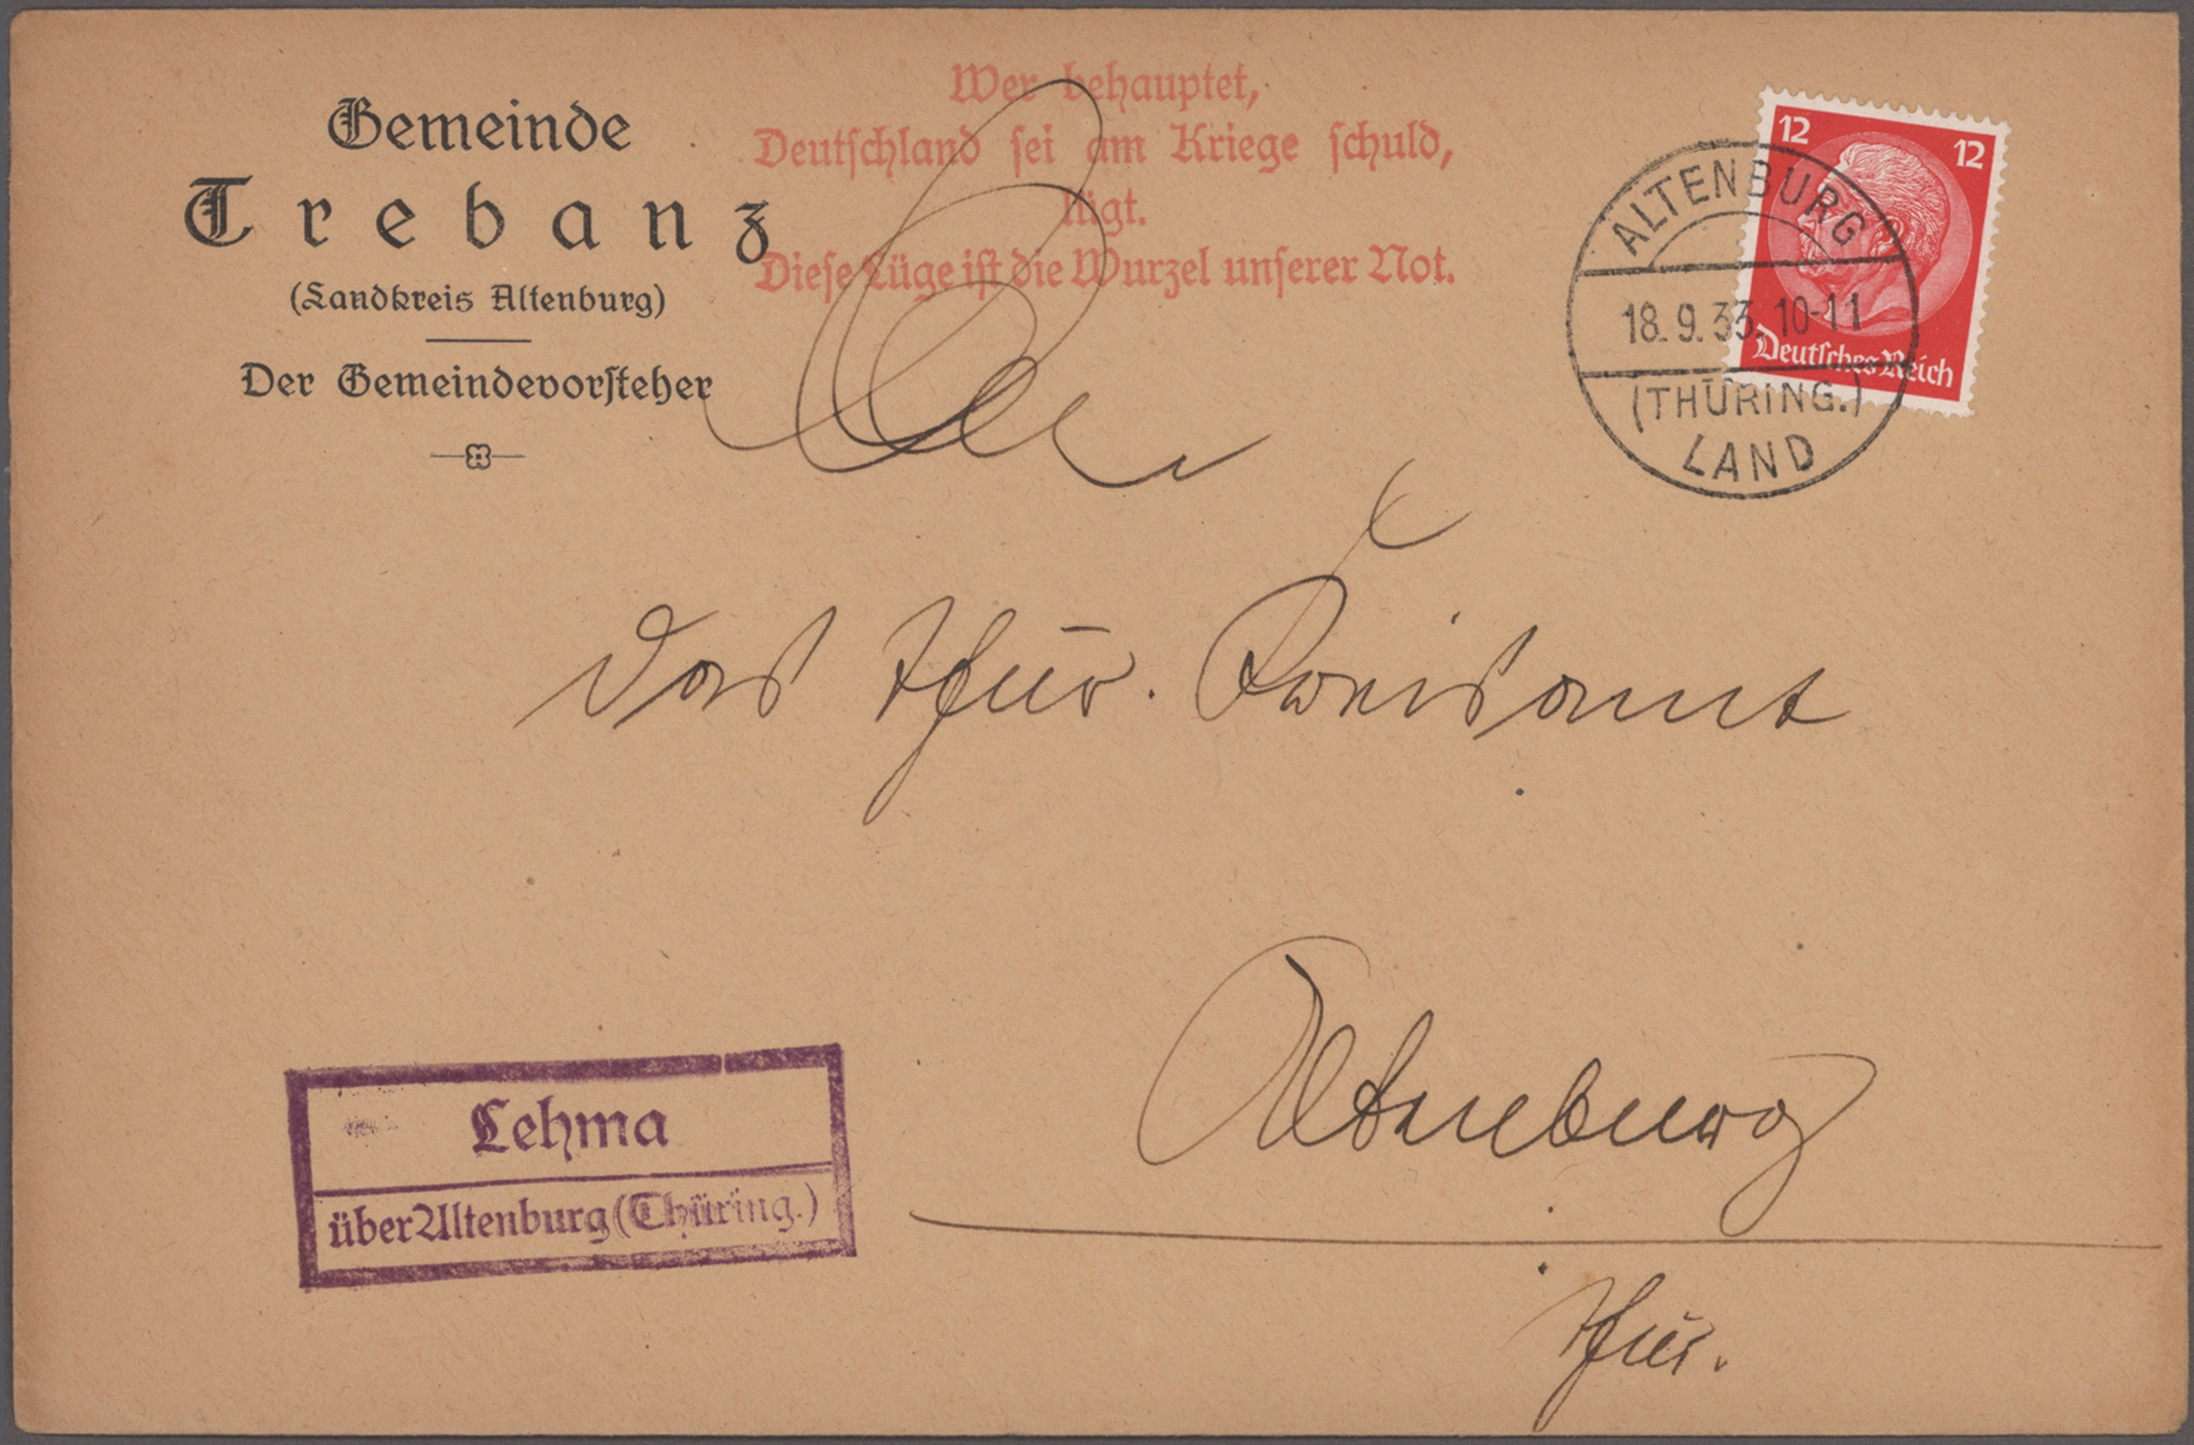 Gemeinde
Trebanz
(Landkreis Altenburg)
Der Gemeindevorsteher
Wer behauptet,
Deutschland sei am Kriege schuld,
lügt.
Diese Lüge ist die Wurzel unserer Not.
12 12
Deutsches Reich
ALTENBURG
18.9.33.10-11
(THÜRING.)
LAND
An
das Thür. Kreisamt
Altenburg
Thür.
Lehma
über Altenburg (Thüring.)